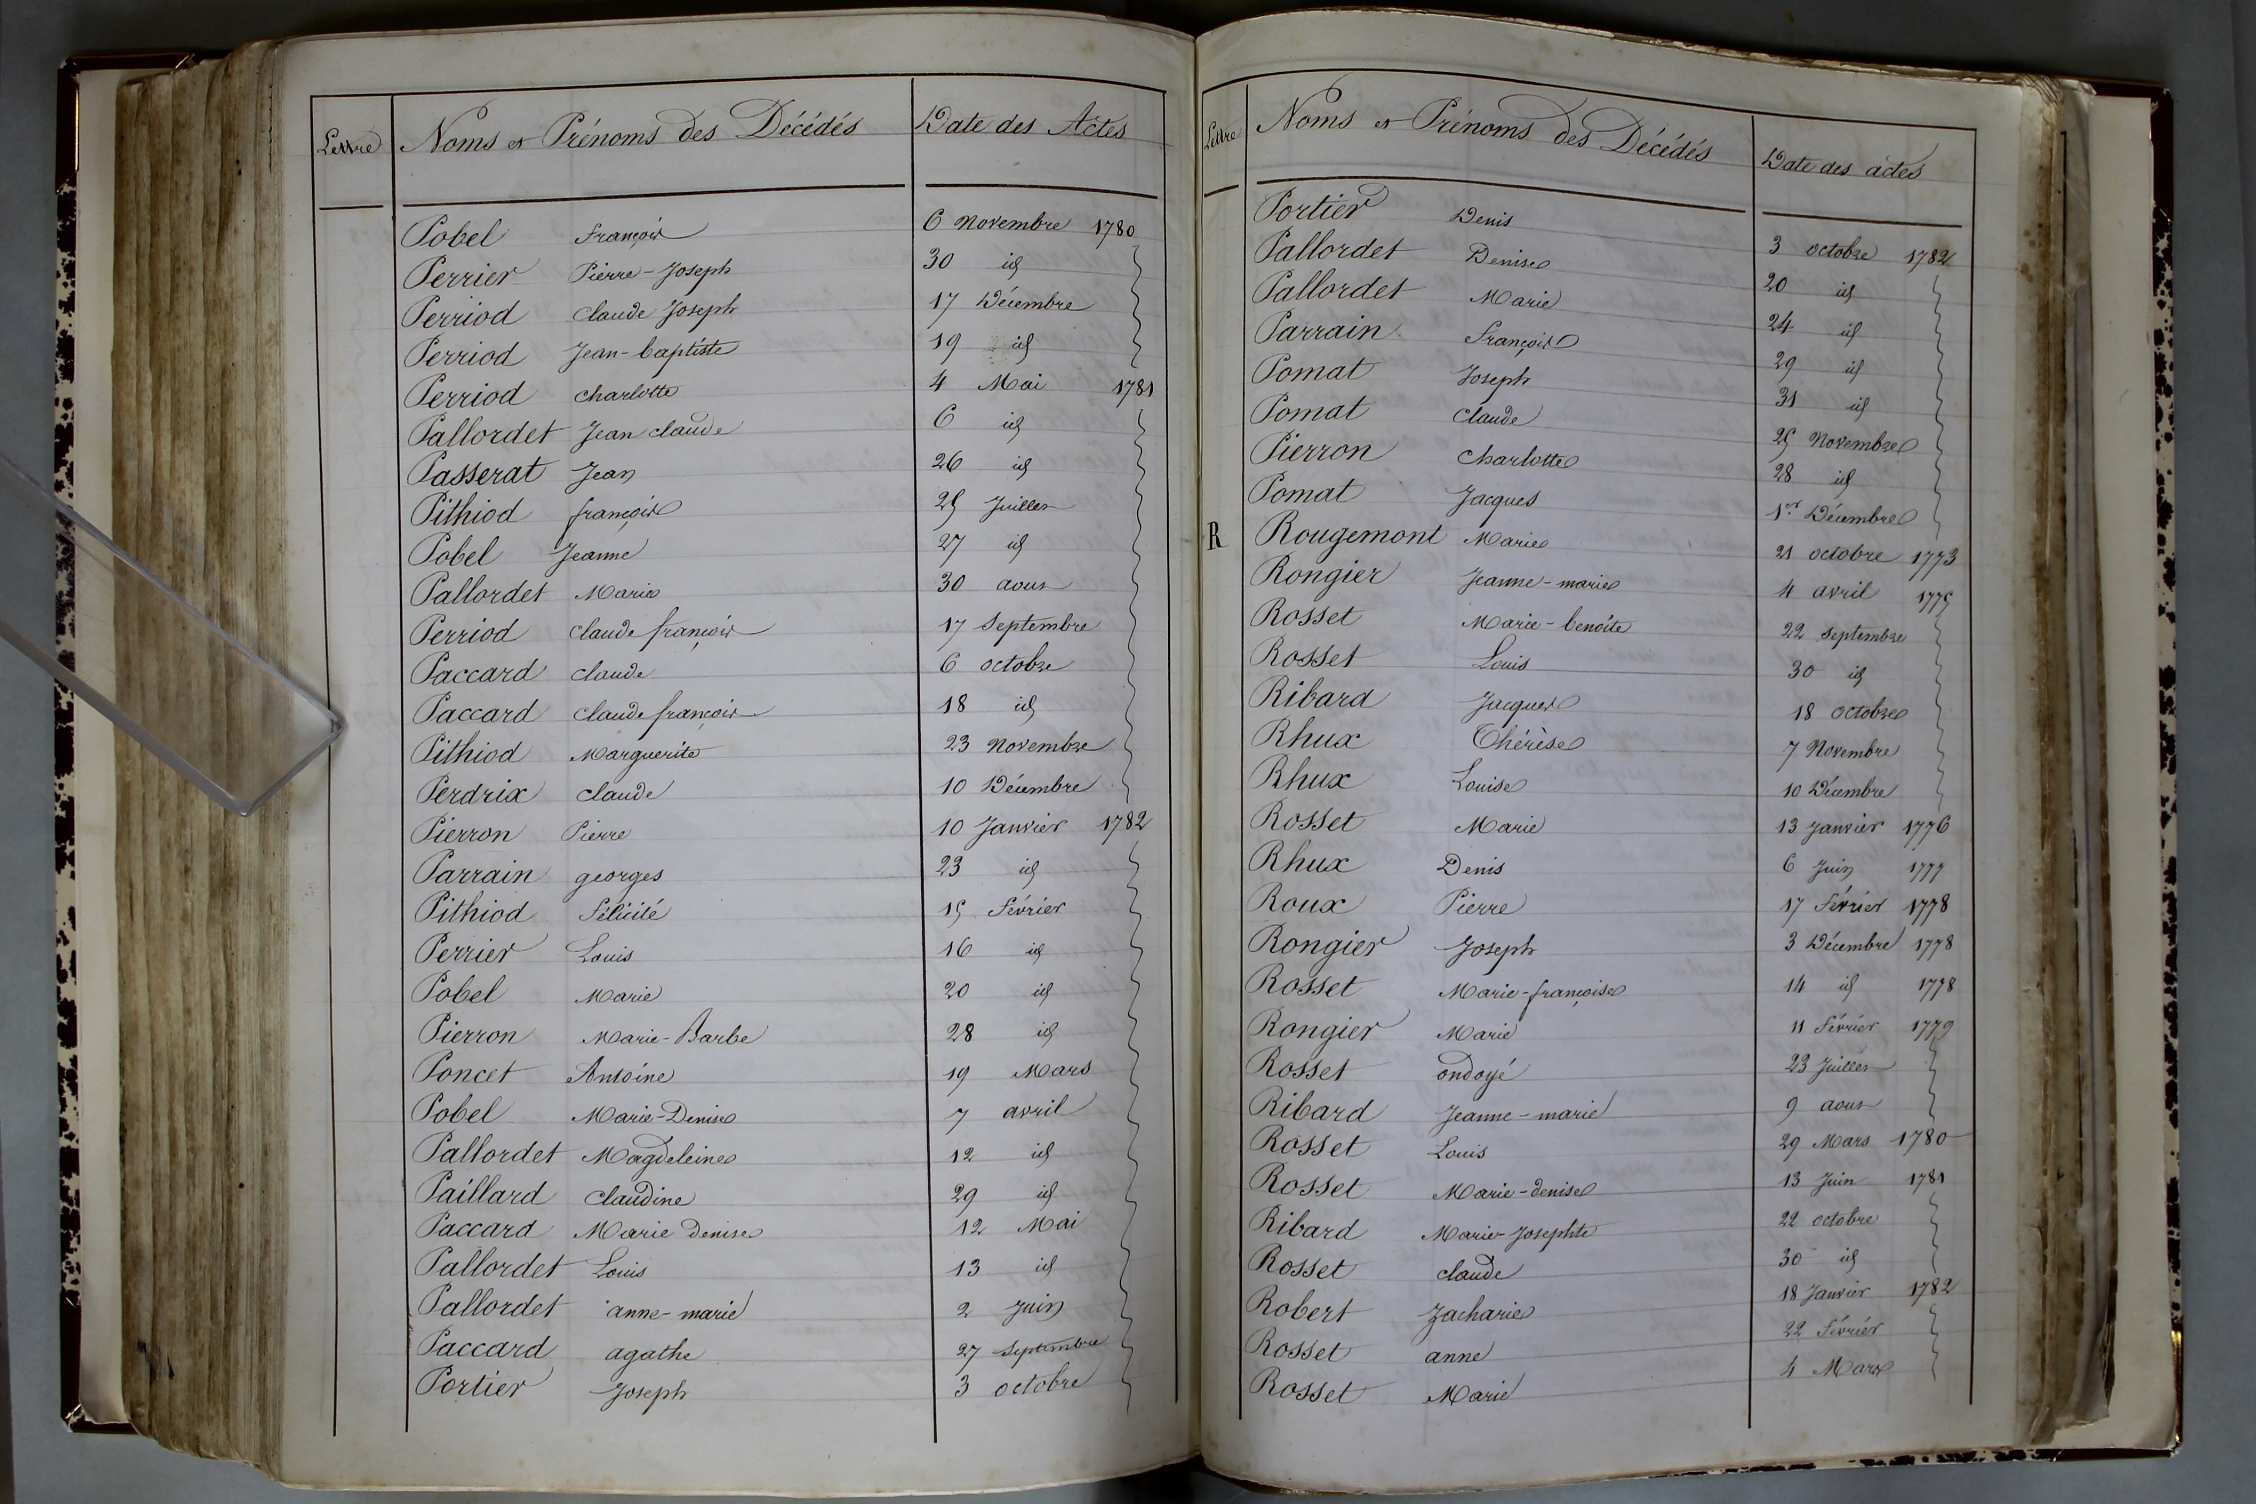 Lettre Noms et Prénoms des Décédés Date des Actes
Pobel François 6 Novembre 1780
Perrier Pierre-Joseph 30 id
Perriod Claude Joseph 17 Décembre
Perriod Jean-baptiste 19 id
Perriod charlotte 4 Mai 1781
Pallordet Jean claude 6 id
Passerat Jean 26 id
Pithiod françois 25 Juillet
Pobel Jeanne 27 id
Pallordet Marie 30 aout
Perriod claude françois 17 Septembre
Paccard claude 6 octobre
Paccard claude françois 18 id
Pithiod Marguerite 23 Novembre
Perdrix claude 10 Décembre
Pierron Pierre 10 Janvier 1782
Parrain georges 23 id
Pithiod Félicité 15 Février
Perrier Louis 16 id
Pobel Marie 20 id
Pierron Marie-Barbe 28 id
Poncet Antoine 19 Mars
Pobel Marie-Denise 7 avril
Pallordet Magdeleine 12 id
Paillard claudine 29 id
Paccard Marie Denise 12 Mai
Pallordet Louis 13 id
Pallordet anne-marie 2 Juin
Paccard agathe 27 Septembre
Portier Joseph 3 octobre
Lettre Noms et Prénoms des Décédés Date des actes
Portier Denis 3 octobre 1782
Pallordet Denise 20 id
Pallordet Marie 24 id
Parrain François 29 id
Pomat Joseph 31 id
Pomat Claude 25 Novembre
Pierron Charlotte 28 id
Pomat Jacques 1er Décembre
R Rougemont Marie 21 octobre 1773
Rongier Jeanne-marie 4 avril 1775
Rosset Marie-benoite 22 septembre
Rosset Louis 30 id
Ribard Jacques 18 octobre
Rhux Thérèse 7 Novembre
Rhux Louise 10 Décembre
Rosset Marie 13 Janvier 1776
Rhux Denis 6 Juin 1777
Roux Pierre 17 Février 1778
Rongier Joseph 3 Décembre 1778
Rosset Marie-françoise 14 id 1778
Rongier Marie 11 Février 1779
Rosset ondoyé 23 Juillet
Ribard Jeanne-marie 9 aout
Rosset Louis 29 Mars 1780
Rosset Marie-denise 13 Juin 1781
Ribard Marie-Josephte 22 octobre
Rosset claude 30 id
Robert Zacharie 18 Janvier 1782
Rosset anne 22 Février
Rosset Marie 4 Mars